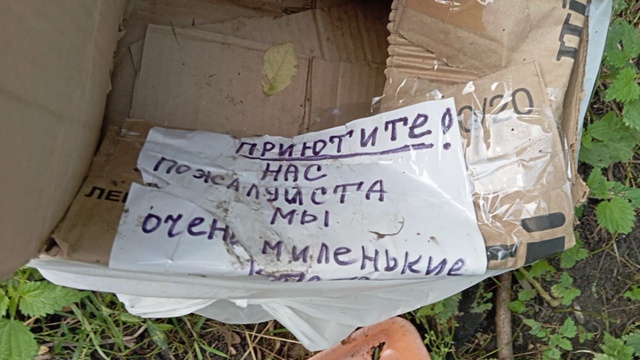 ПРИЮТИТЕ!
НАС
ПОЖАЛУЙСТА
МЫ
ОЧЕНЬ МИЛЕНЬКИЕ
0/20